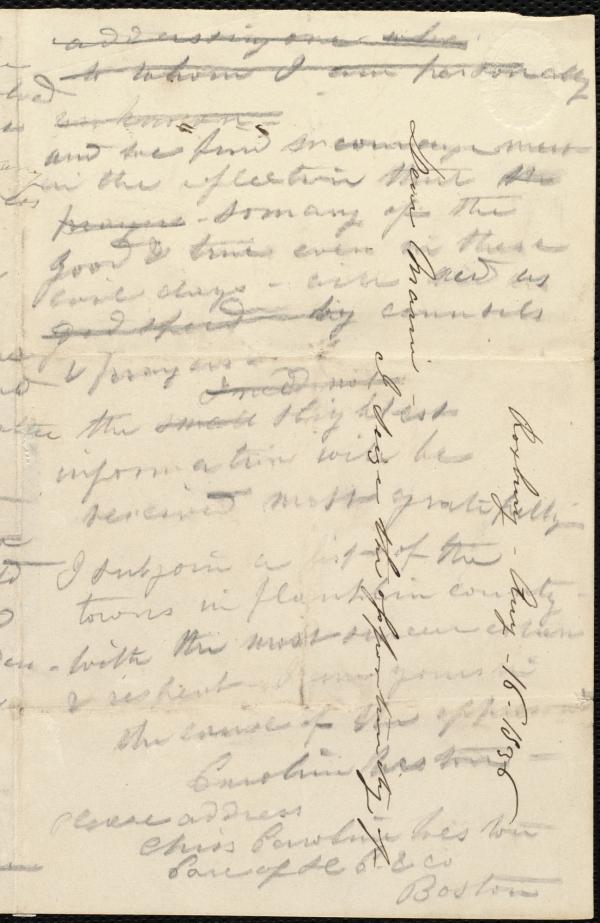 addressing one who
to whom I am personally
unknown
and we find encouragement
in the reflection that the
prayers - so many of the
good & true even in these
evil days - will aid us
god speed by counsels
& prayers -
I need not
the small slightest
information will be
received most gratefully
I subjoin a list of the
towns in Franklin county -
with the most sincere esteem
& respect - I am yours in
the cause of the oppressed
Caroline Weston -
please address
Miss Caroline Weston
Care of H. C. & Co
Boston
Roxbury - Aug - 16 - 1836
Dear Maam -
I seize the opportunity of